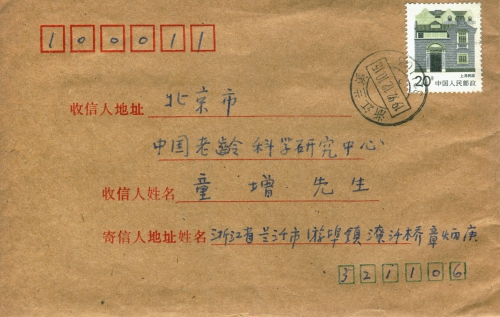 100011
20分 上海民居
中国人民邮政
浙江
收信人地址 北京市
中国老龄科学研究中心
收信人姓名 童增先生
寄信人地址姓名 浙江省兰沂市游埠镇 桥章炳庚
321106